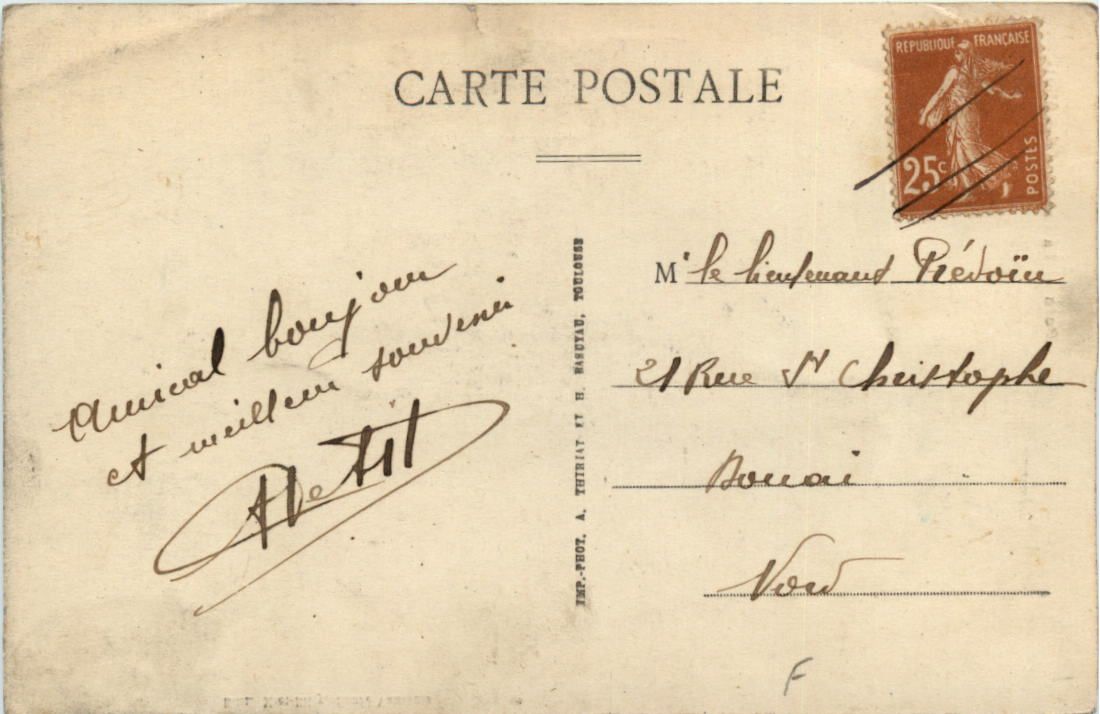 CARTE POSTALE
REPUBLIQUE FRANÇAISE
25c
POSTES
Amical bonjour
et meilleur souvenir
APetit
IMP.-PHOT. A. THIRIAT ET H. BASUYAU, TOULOUSE
Mr le lieutenant Prédoïn
21 Rue St Christophe
Douai
Nord
F